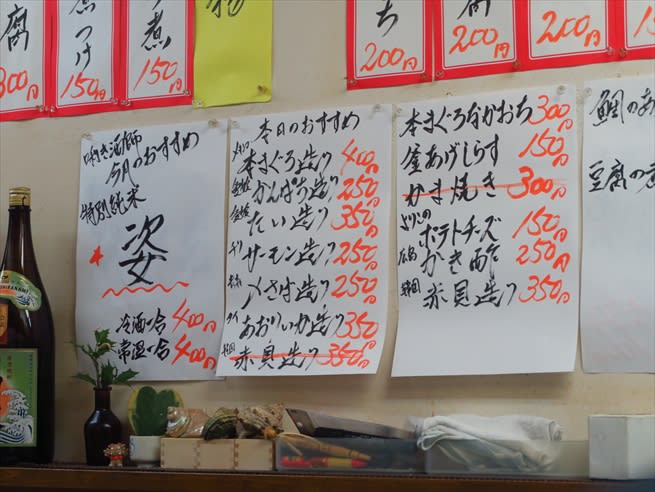 腐
300円
煮つけ
150円
煮
150円
ち
200円
腐
200円
200円
15
唎き酒師
今月のおすすめ
特別純米
姿
冷酒一合 400円
常温一合 400円
本日のおすすめ
本まぐろ造り 400円
かんぱち造り 250円
たい造り 350円
サーモン造り 250円
〆さば造り 250円
あおりいか造り 350円
韓国 赤貝造り 350円
本まぐろなかおち 300円
釜あげしらす 150円
かま焼き 300円
ポテトチーズ 150円
広島 かき酢 250円
韓国 赤貝造り 350円
鯛のあ
豆腐の